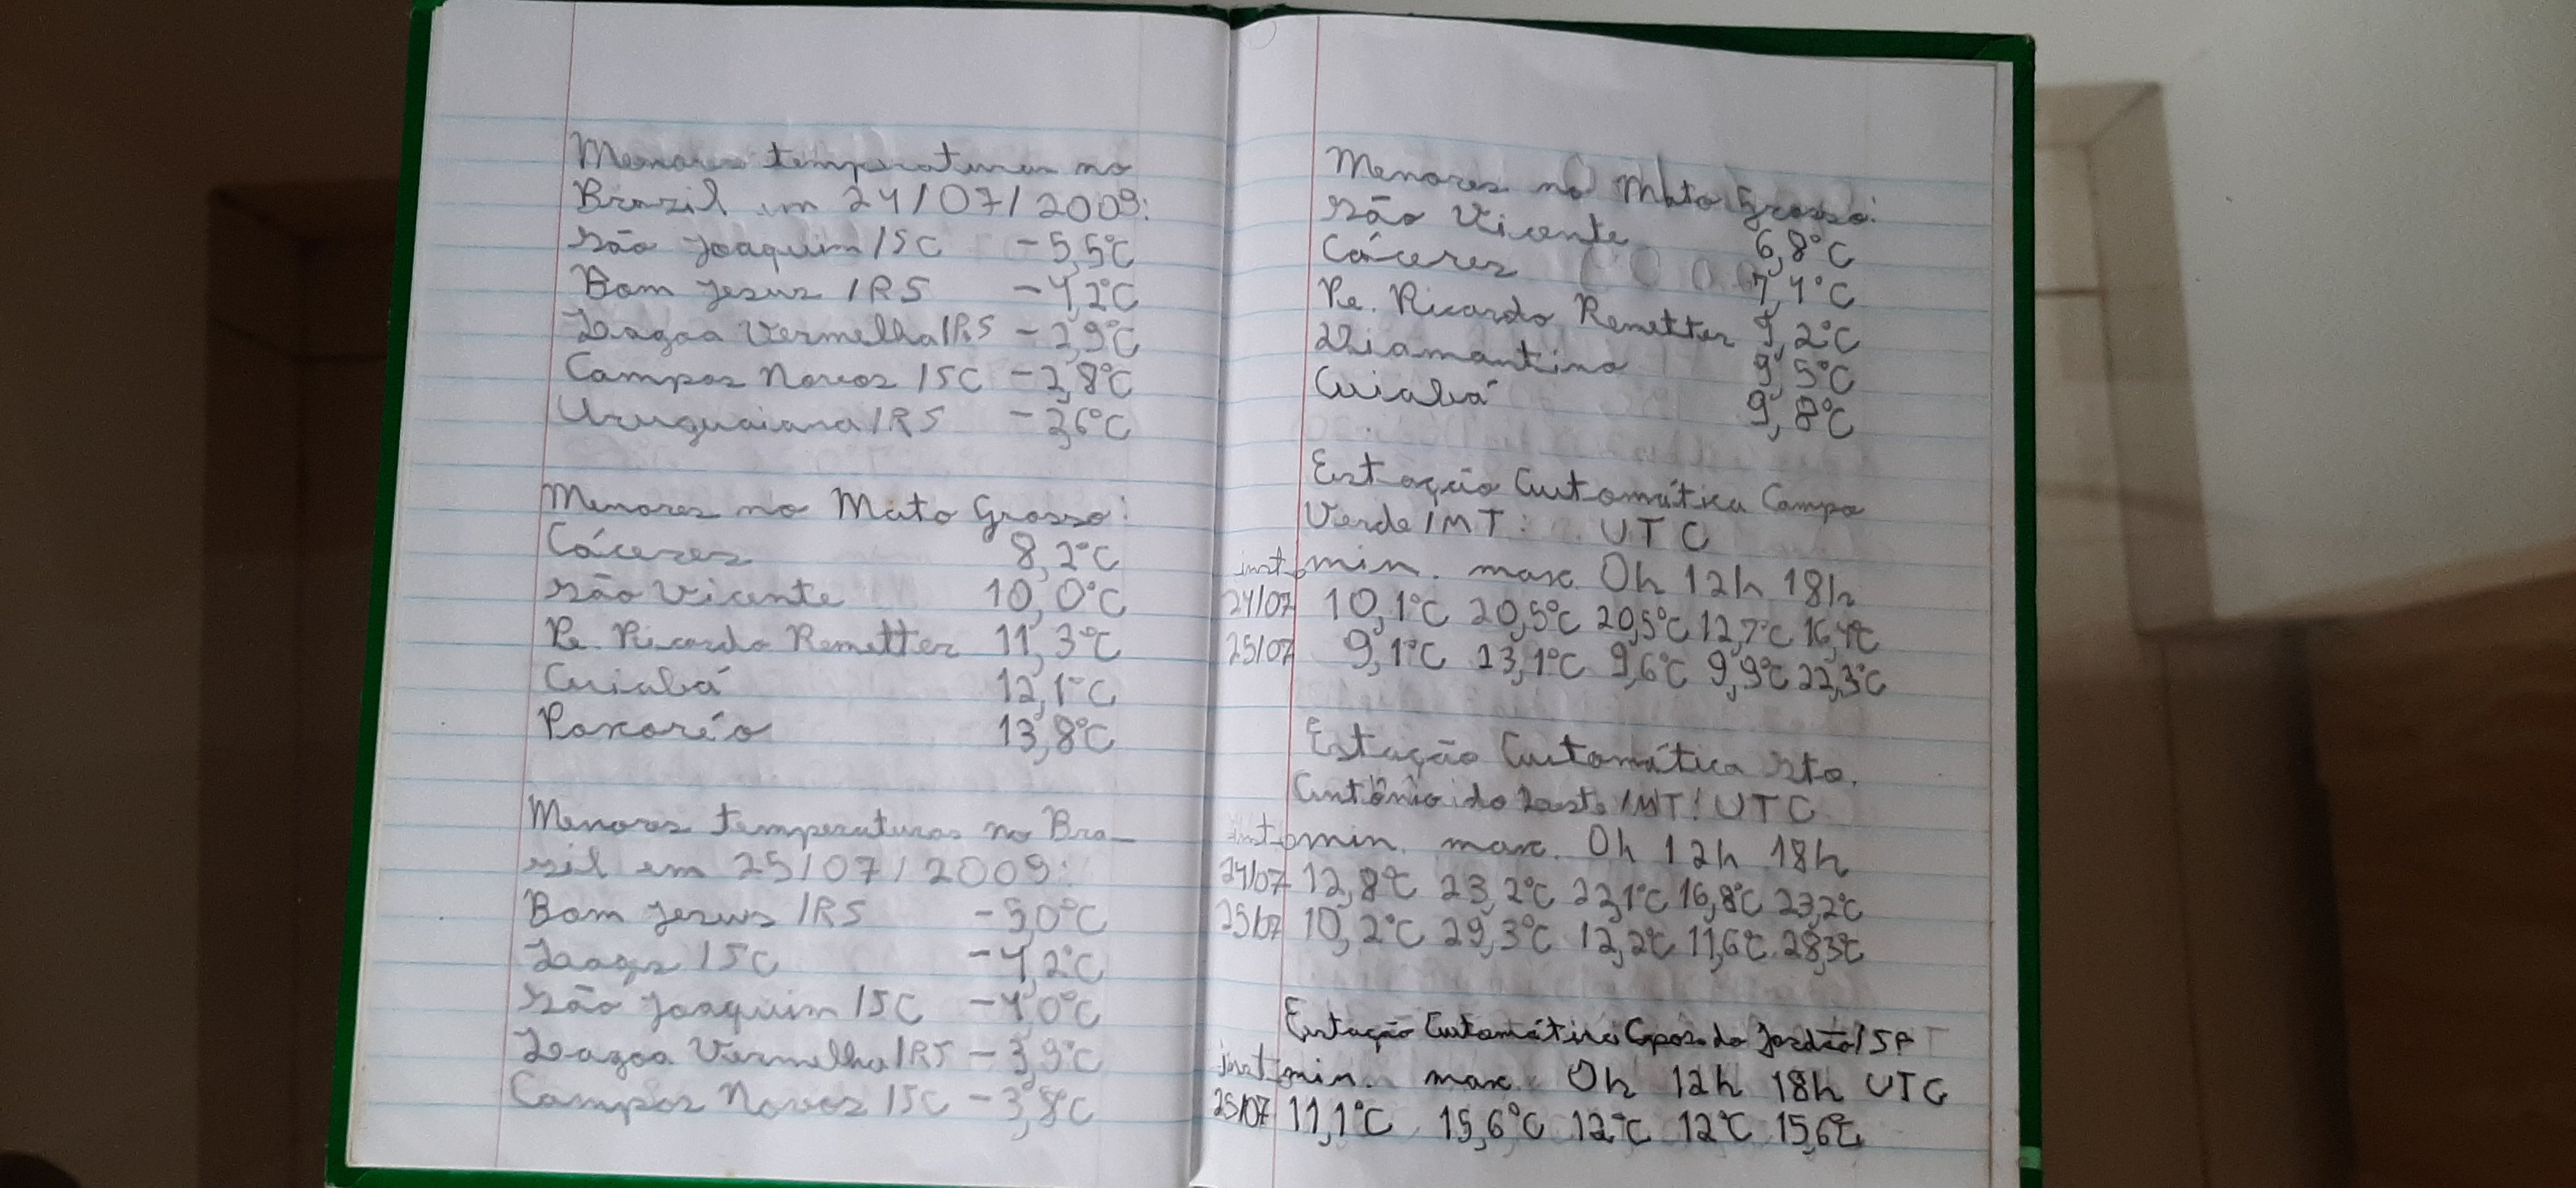 Menores temperaturas no
Brazil em 24/07/2009:
São Joaquim/SC -5,5°C
Bom Jesus/RS -4,2°C
Lagoa Vermelha/RS -2,9°C
Campos Novos/SC -2,8°C
Uruguaiana/RS -2,6°C
Menores no Mato Grosso:
Cáceres 8,2°C
São Vicente 10,0°C
Pe. Ricardo Remetter 11,3°C
Cuiabá 12,1°C
Poxoréo 13,8°C
Menores temperaturas no Bra-
sil em 25/07/2009:
Bom Jesus/RS -5,0°C
Lages/SC -4,2°C
São Joaquim/SC -4,0°C
Lagoa Vermelha/RS -3,9°C
Campos Novos/SC -3,8°C
Menores no Mato Grosso:
São Vicente 6,8°C
Cáceres 7,4°C
Pe. Ricardo Remetter 9,2°C
Diamantino 9,5°C
Cuiabá 9,8°C
Estação Automática Campo
Verde/MT: UTC
inst. min. max. 0h 12h 18h
24/07 10,1°C 20,5°C 20,5°C 12,7°C 16,4°C
25/07 9,1°C 23,1°C 9,6°C 9,9°C 22,3°C
Estação Automática Sto.
Antônio do Leste/MT: UTC
inst. min. max. 0h 12h 18h
24/07 12,8°C 23,2°C 22,1°C 16,8°C 23,2°C
25/07 10,2°C 29,3°C 12,2°C 11,6°C 28,3°C
Estação Automática Cpos. do Jordão/SP
inst. min. max. 0h 12h 18h UTC
25/07 11,1°C 15,6°C 12°C 12°C 15,6°C